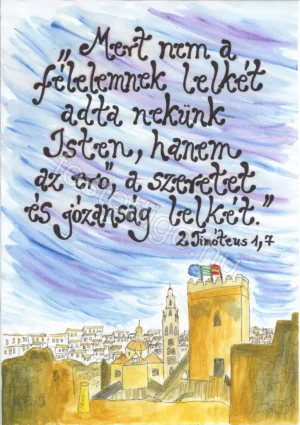 „Mert nem a
félelemnek lelkét
adta nekünk
Isten, hanem
az erő, a szeretet
és józanság lelkét.”
2. Timóteus 1,7